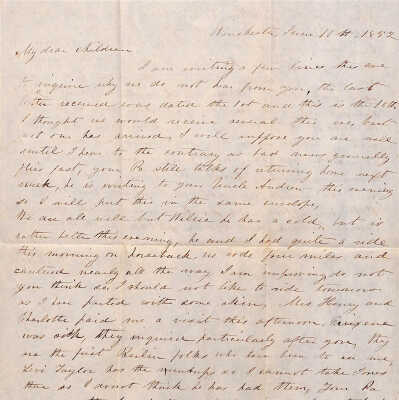 Winchester June 11th, 1852
My dear children
I am writing a few lines this eve
to inquire why we do not hear from you, the last
letter received was dated the 1st and this is the 11th,
I thought we would receive several this eve, but
not one has arrived, I will suppose you are well
until I hear to the contrary as bad news generally
flies fast, your Pa still talks of returning home next
week, he is writing to your Uncle Andrew this evening
so I will put this in the same envelope,
We are all well but Willie he has a cold, but is
rather better this evening, he and I had quite a ride
this morning on horseback we rode four miles and
cantered nearly all the way I am improving do not
you think so, I should not like to ride tomorrow
as I am parted with some skin, Mrs Henry and
Charlotte paid me a visit this afternoon,
was with, they inquired particularly after you, they
are the first Berlin folks who have been to see me
Levi Taylor has the mumps so I cannot take Jones
there as I do not think he has had them, Your Pa